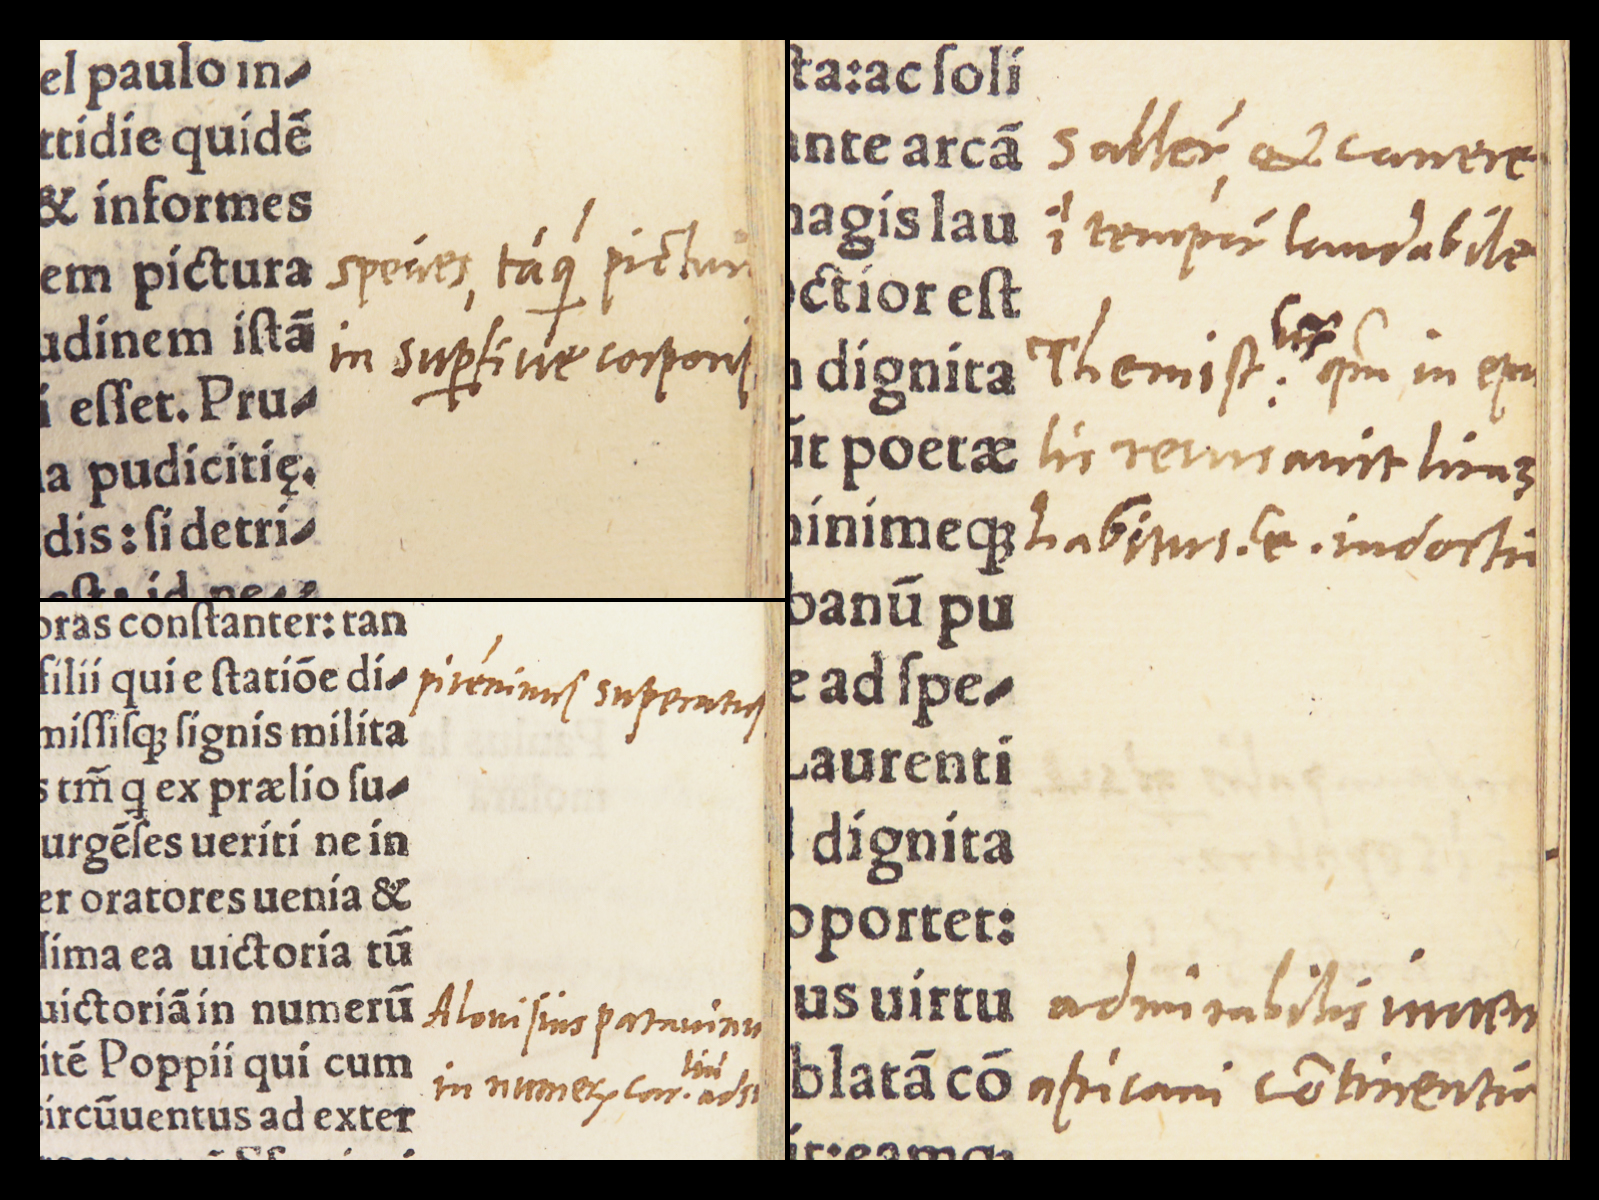 el paulo in-
ttidie quidē
& informes
em pictura
udinem istā
i esset. Pru-
a pudicitię.
dis: si detri-
species, tāq
in corporis
oras constanter: tan
filii qui e statiōe di-
missisq; signis milita
s tm̄ q ex prælio su-
urgēses ueriti ne in
er oratores uenia &
sima ea uictoria tū
uictoriā in numerū
itē Poppii qui cum
circūuentus ad exter
piceninus superatus
Alouisius patauinu
in car.
sta: ac soli
ante arcā
magis lau
octior est
n dignita
ūt poetæ
minimeq;
banū pu
e ad spe-
Laurenti
l dignita
oportet:
us uirtu
blatā cō
& canere
laudabile
Themist. in epu
lis lirā
habitus. e. indocti
admirabilis
africani cōtinentia